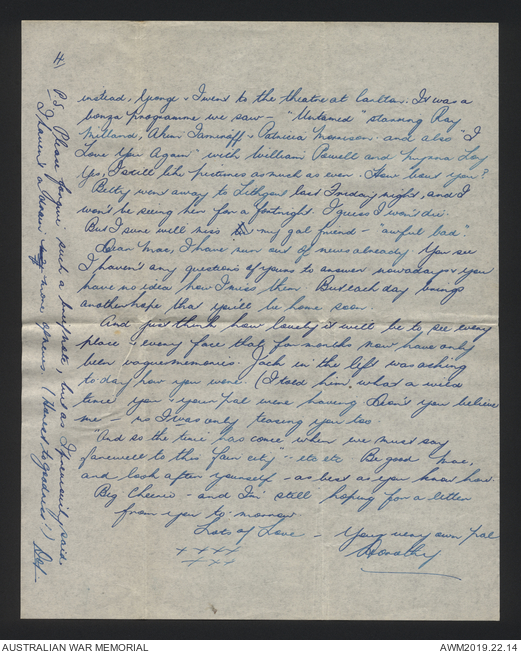 4)
instead, George & I went to the theatre at Carlton. It was a
bonza programme we saw - "Untamed" starring Ray
Milland, Akim Tamiroff & Patricia Morrison and also "I
Love You Again" with William Powell and Myrna Loy
Yes, I still like pictures as much as ever. How 'bout you?
Betty went away to Lithgow last Friday night, and I
won't be seeing her for a fortnight. I guess I won't die.
But I sure will miss my gal friend - "awful bad."
Dear Mac, I have run out of news already. You see
I haven't any questions of yours to answer nowadays & you
have no idea how I miss them. But each day brings
another hope that you'll be home soon.
And just think how lovely it will be to see every
place & every face that for months now have only
been vague memories. Jack in the lift was asking
to-day how you were. (I told him what a wild
time you & your pal were having. Don't you believe
me - no I was only teasing you too.
"And so the time has come when we must say
farewell to this fair city" - etc etc Be good Mac,
and look after yourself - as best as you know how.
Big Cheerio - and I'm still hoping for a letter
from you to-morrow
Lots of Love - Your very own pal
Dorothy
x x x x
x x x
P.S. Please forgive such a brief note, but as I previously said.
I haven't a news of news (Honest to goodness!) Dot
AUSTRALIAN WAR MEMORIAL
AWM2019.22.14